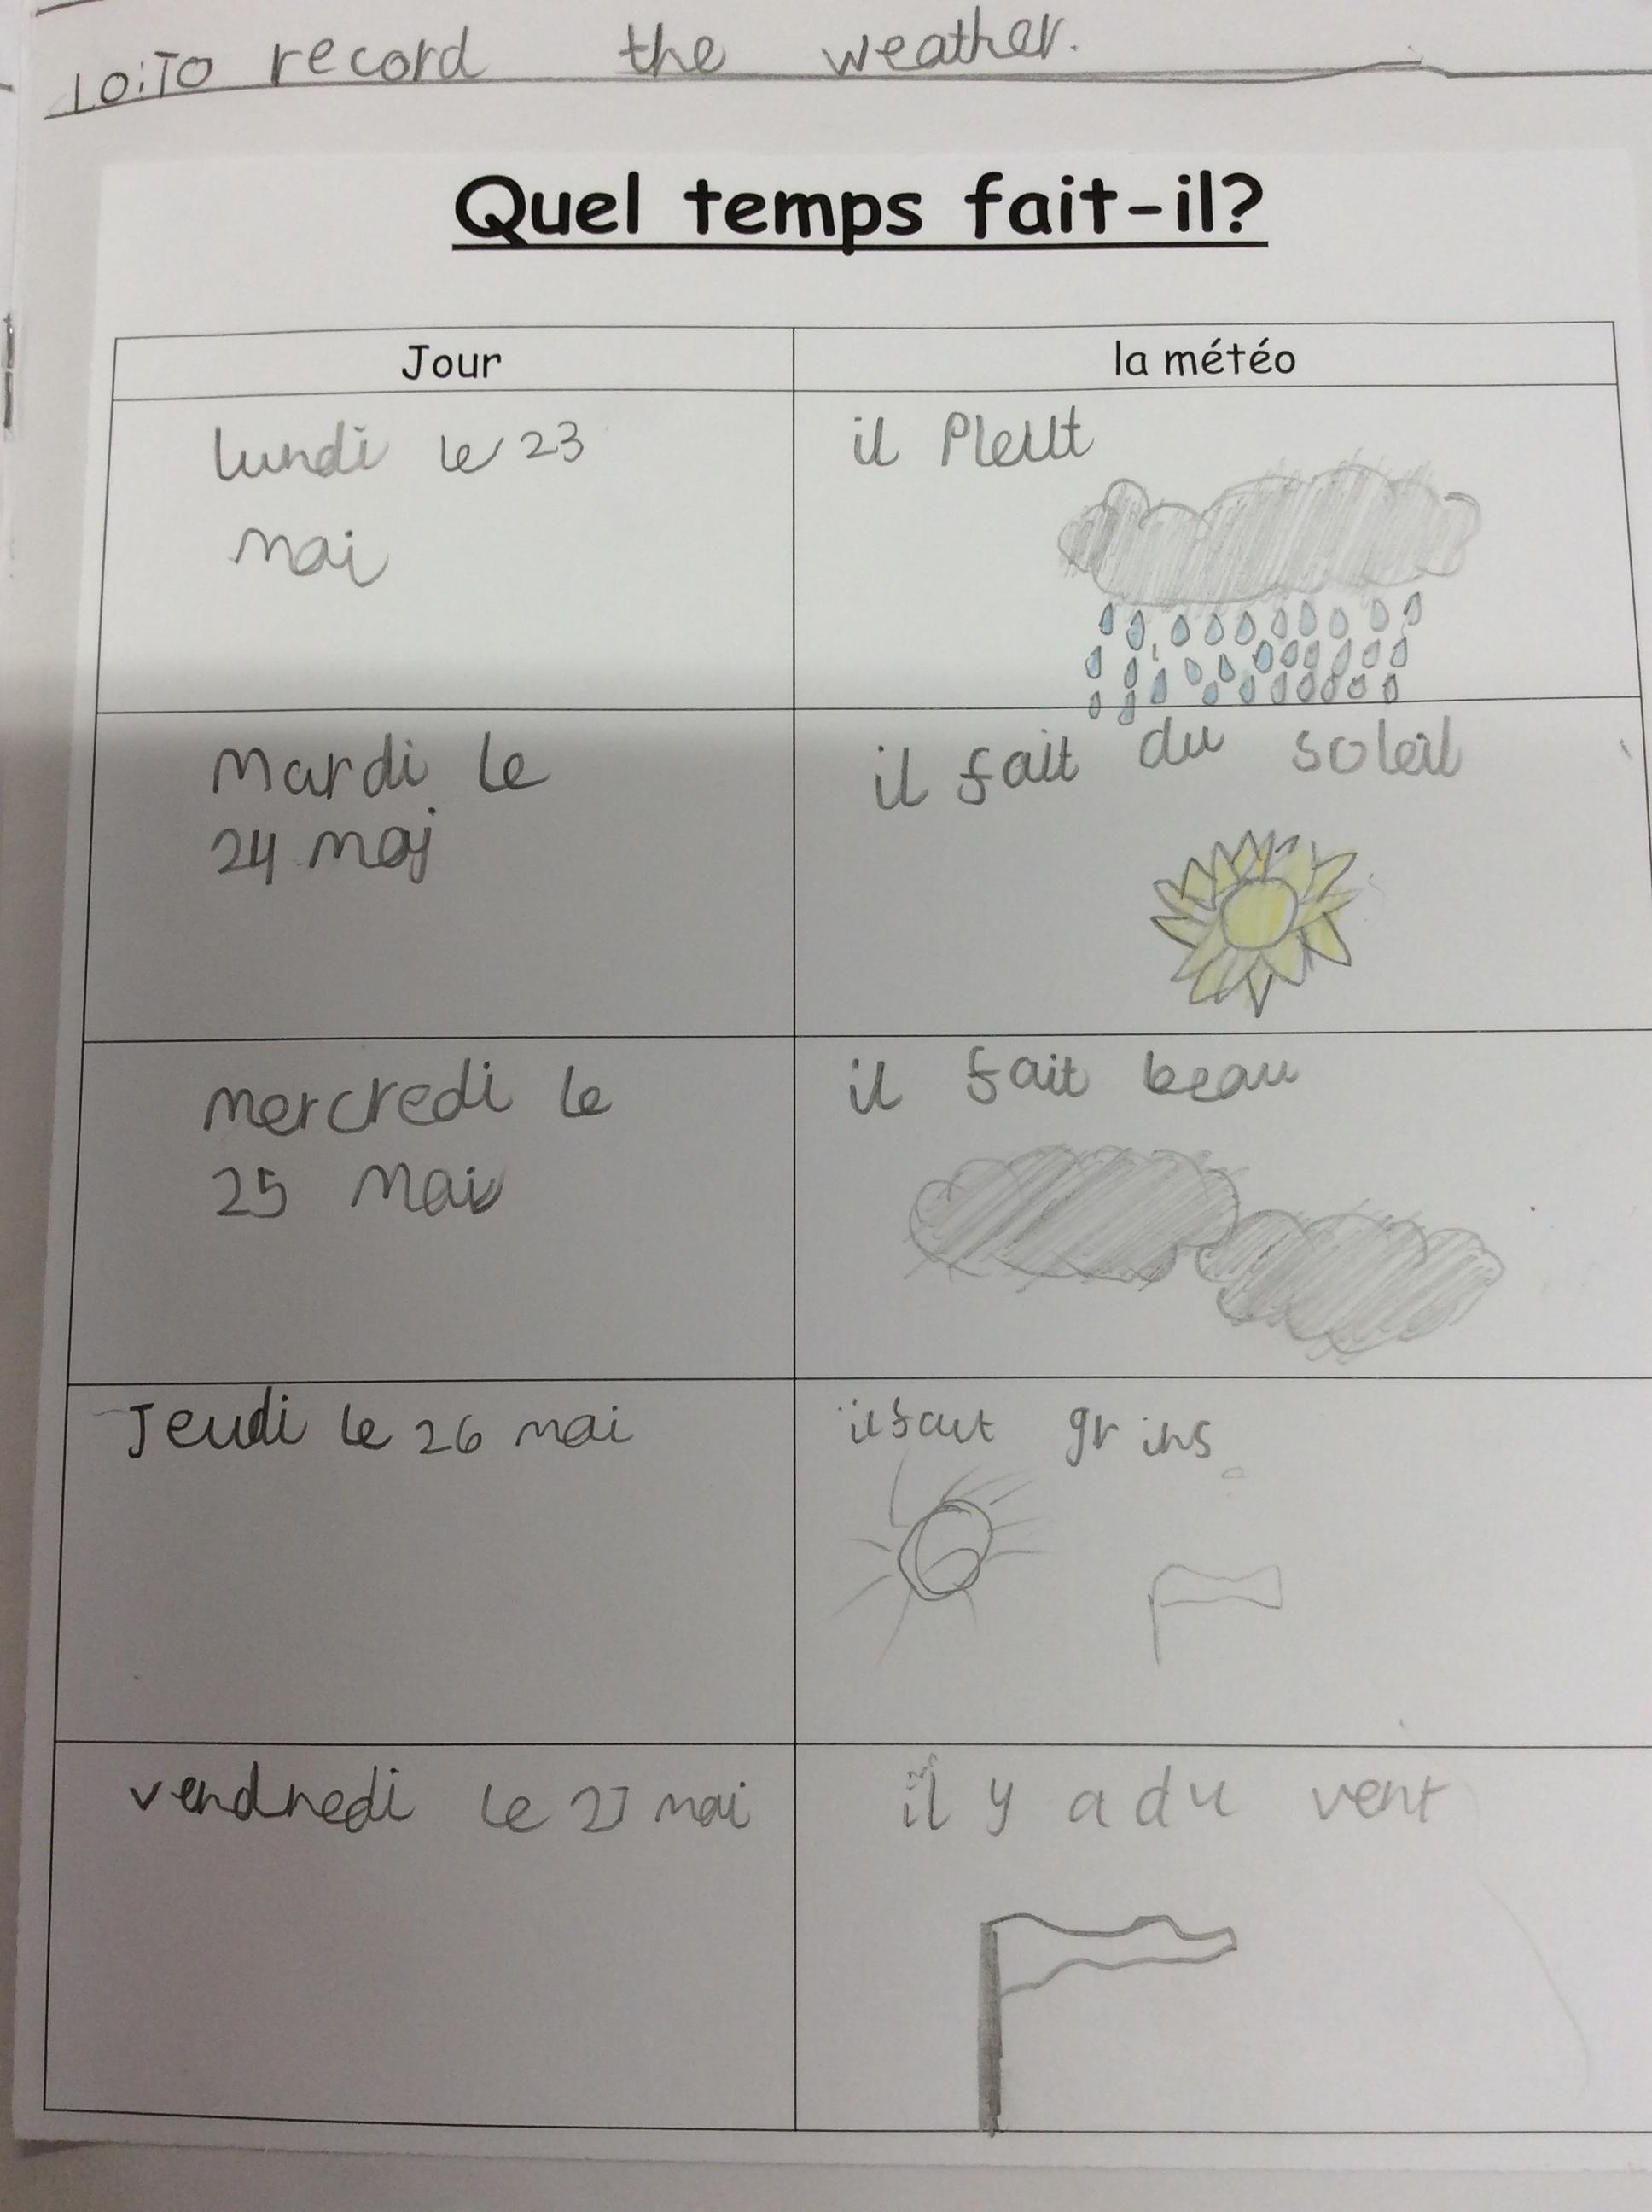 LO: To record the weather.
Quel temps fait-il?
Jour
la météo
lundi le 23
mai
il Pleut
Mardi le
24 mai
il fait du soleil
mercredi le
25 Mai
il fait beau
Jeudi le 26 mai
il fait gris
vendredi le 27 mai
il y a du vent